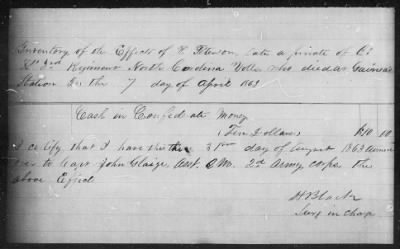 Inventory of the Effects of late a private of Co
3rd Regiment North Carolina Vols who died at
Station Va the 7 day of April 1863
Cash in Confederate Money
(Ten Dollars) $10 10
I certify that I have this the 31st day of August 1863
over to Capt John Asst. Q.M. 2d Army corps the
above Effect
H Black
Surg in Charge